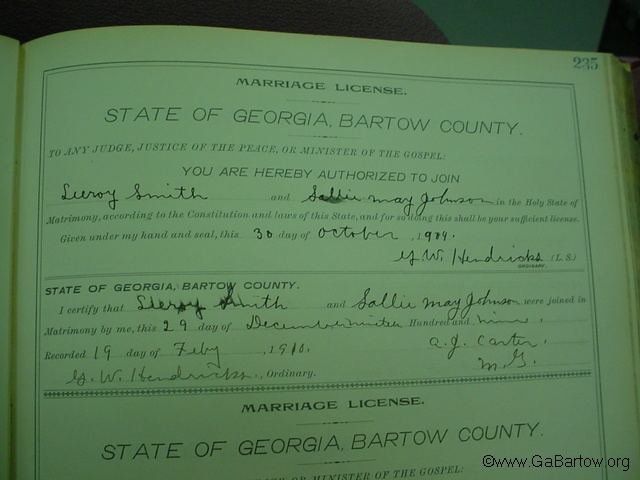 235
MARRIAGE LICENSE.
STATE OF GEORGIA, BARTOW COUNTY.
TO ANY JUDGE, JUSTICE OF THE PEACE, OR MINISTER OF THE GOSPEL:
YOU ARE HEREBY AUTHORIZED TO JOIN
Leeroy Smith and Sallie May Johnson in the Holy State of
Matrimony, according to the Constitution and laws of this State, and for so doing this shall be your sufficient license.
Given under my hand and seal, this 30 day of October, 1909.
G. W. Hendricks (L. S.)
ORDINARY.
STATE OF GEORGIA, BARTOW COUNTY.
I certify that Leeroy Smith and Sallie May Johnson were joined in
Matrimony by me, this 29 day of December Nineteen Hundred and nine.
Recorded 19 day of Feby, 1910. A. J. Carter
G. W. Hendricks, Ordinary. M. G.
MARRIAGE LICENSE.
STATE OF GEORGIA, BARTOW COUNTY.
OR MINISTER OF THE GOSPEL:
©www.GaBartow.org